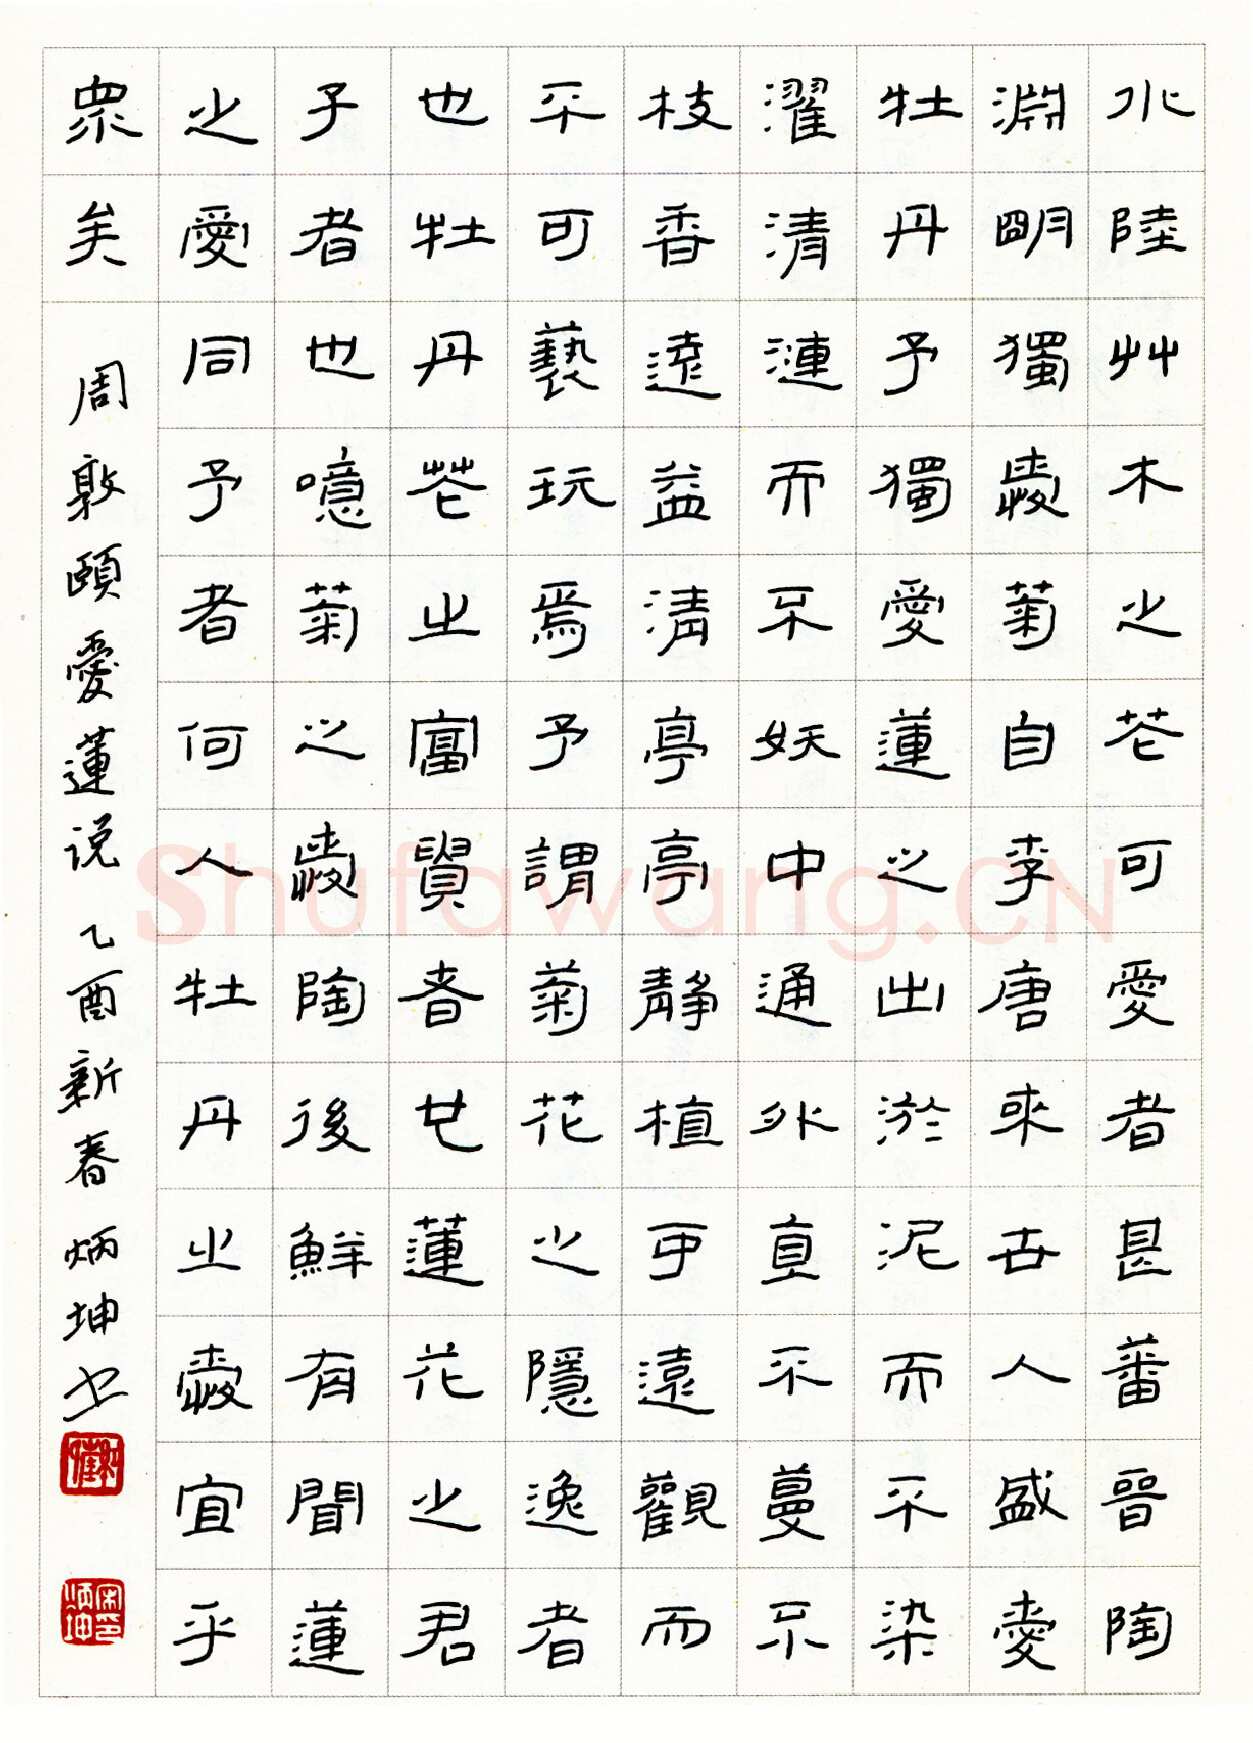 水陸艸木之芲可愛者甚蕃晉陶
淵明獨愛菊自李唐來世人盛愛
牡丹予獨愛蓮之出淤泥而不染
濯清漣而不妖中通外直不蔓不
枝香遠益清亭亭靜植可遠觀而
不可褻玩焉予謂菊花之隱逸者
也牡丹芲之富貴者也蓮花之君
子者也噫菊之愛陶後鮮有聞蓮
之愛同予者何人牡丹之愛宜乎
眾矣
周敦頤愛蓮说 乙酉新春炳坤书
宋炳坤印
Shufawang.CN